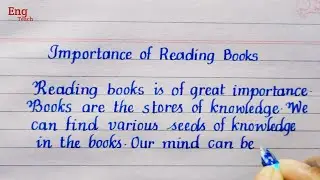 Eng
Teach
Importance of Reading Books
Reading books is of great importance.
Books are the stores of knowledge. We
can find various seeds of knowledge
in the books. Our mind can be